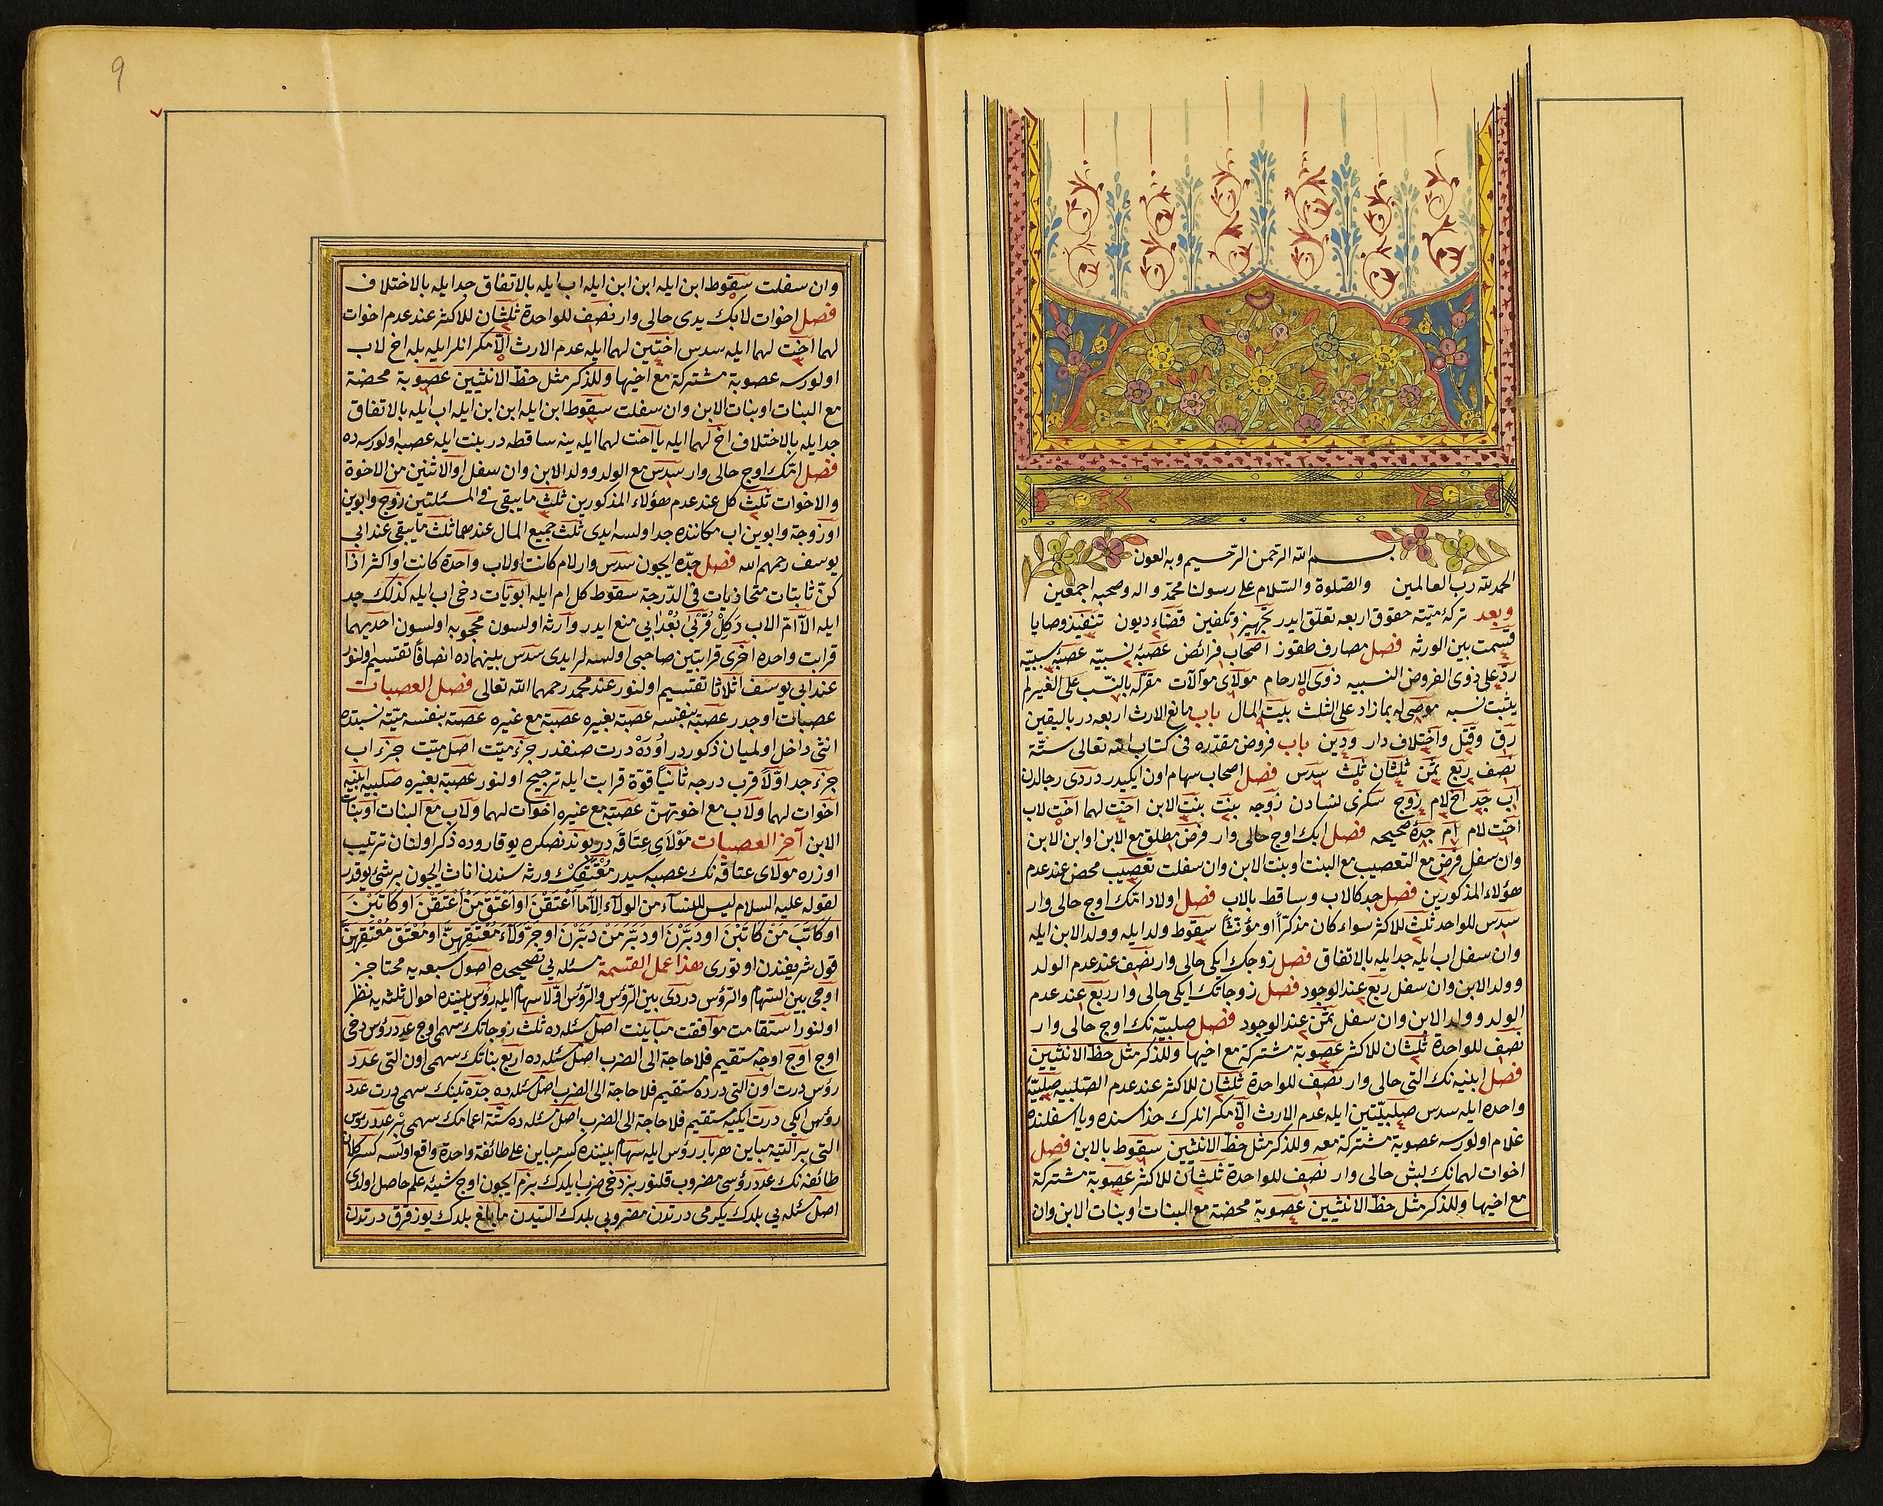 بسم الله الرحمن الرحيم وبه العون
الحمد لله رب العالمين والصلوة والسلام على رسولنا محمد واله وصحبه اجمعين
وبعد تركۀ ميته حقوق اربعه تعلق ايدر تجهيز وتكفين قضاء ديون تنفيذ وصايا
قسمت بين الورثه فصل مصارف طقوز اصحاب فرائض عصبۀ نسبيه عصبۀ سببيه
رد على ذوى الفروض النسبيه ذوى الارحام مولاى موالات مقر له بالنسب على الغير لم
يثبت نسبه موصى له بما زاد على الثلث بيت المال باب مانع الارث اربعه در باليقين
رق وقتل واختلاف دار ودين باب فروض مقدره فى كتاب الله تعالى ستة
نصف ربع ثمن ثلثان ثلث سدس فصل اصحاب سهام اون ايكيدر دردى رجالدن
اب جد اخ لام زوج سكزى نسادن زوجه بنت بنت الابن اخت لهما اخت لاب
اخت لام ام جدۀ صحيحه فصل ابك اوج حالى وار فرض مطلق مع الابن او ابن الابن
وان سفل فرض مع التعصيب مع البنت او بنت الابن وان سفلت تعصيب محض عند عدم
هؤلاء المذكورين فصل جد كالاب وساقط بالاب فصل اولاد امك اوج حالى وار
سدس للواحد ثلث للاكثر سواء كان مذكرا او مؤنثا سقوط ولد ايله وولد الابن ايله
وان سفل اب ايله جد ايله بالاتفاق فصل زوجك ايكى حالى وار نصف عند عدم الولد
وولد الابن وان سفل ربع عند الوجود فصل زوجاتك ايكى حالى وار ربع عند عدم
الولد وولد الابن وان سفل ثمن عند الوجود فصل صلبيه نك اوج حالى وار
نصف للواحدة ثلثان للاكثر عصوبة مشتركة مع اخيها وللذكر مثل حظ الانثيين
فصل ابنيه نك التى حالى وار نصف للواحدة ثلثان للاكثر عند عدم الصلبيه صلبيۀ
واحده ايله سدس صلبيتين ايله عدم الارث الا مكر انلرك حذاسنده ويا اسفلنده
غلام اولورسه عصوبة مشتركة معه وللذكر مثل حظ الانثيين سقوط بالابن فصل
اخوات لهمانك بش حالى وار نصف للواحدة ثلثان للاكثر عصوبة مشتركة
مع اخيها وللذكر مثل حظ الانثيين عصوبة محضة مع البنات او بنات الابن وان
٩
وان سفلت سقوط ابن ايله ابن ابن ايله اب ايله بالاتفاق جد ايله بالاختلاف
فصل اخوات لابك يدى حالى وار نصف للواحدة ثلثان للاكثر عند عدم اخوات
لهما اخت لهما ايله سدس اختين لهما ايله عدم الارث الا مكر انلر ايله بله اخ لاب
اولورسه عصوبة مشتركة مع اخيها وللذكر مثل حظ الانثيين عصوبة محضة
مع البنات او بنات الابن وان سفلت سقوط ابن ايله ابن ابن ايله اب ايله بالاتفاق
جد ايله بالاختلاف اخ لهما ايله يا اخت لهما ايله ينه ساقطه در بنت ايله عصبه اولورسه ده
فصل امك اوج حالى وار سدس مع الولد وولد الابن وان سفل او الاثنين من الاخوة
والاخوات ثلث كل عند عدم هؤلاء المذكورين ثلث ما يبقى فى المسئلتين زوج وابوين
او زوجة وابوين اب مكاننده جد اولسه ايدى ثلث جميع المال عندهما ثلث ما يبقى عند ابى
يوسف رحمهم الله فصل جده ايجون سدس وار لام كانت او لاب واحدة كانت او اكثر اذا
كن ثابتات متحاذيات فى الدرجة سقوط كل ام ايله ابويات دخى اب ايله كذلك جد
ايله الا ام الاب وكل قربى بعدايى منع ايدر وارثه اولسون محجوبه اولسون احديهما
قرابت واحده اخرى قرابتين صاحبى اولسه لر ايدى سدس بينهماده انصافا تقسيم اولنور
عند ابى يوسف اثلاثا تقسيم اولنور عند محمد رحمهما الله تعالى فصل العصبات
عصبات اوجدر عصبۀ بنفسه عصبۀ بغيره عصبۀ مع غيره عصبۀ بنفسه ميته نسبتده
انثى داخل اولميان ذكوردر او ده درت صنفدر جزء ميت اصل ميت جزء اب
جزء جد اولا قرب درجه ثانيا قوة قرابت ايله ترجيح اولنور عصبۀ بغيره صلبيه ابنيه
اخوات لهما ولاب مع اخوتهن عصبۀ مع غيره اخوات لهما ولاب مع البنات او بنات
الابن آخر العصبات مولاى عتاقه در ترتيب
اوزره مولاى عتاقه نك عصبه سيدر معتقك ورثه سندن اناث ايجون بر شى يوقدر
لقوله عليه السلام ليس للنساء من الولاء الا ما اعتقن او اعتق من اعتقن او كاتبن
او كاتب من كاتبن او دبرن او دبر من دبرن او جر ولاء معتقهن او معتق معتقهن
قول شريفندن اوتورى هذا عمل القسمة مسئله يى تصحيحده اصول سبعه يه محتاجز
اوجى بين السهام والرؤس دردى بين الرؤس والرؤس اولا سهام ايله رؤس بيننده احوال ثلثه يه نظر
اولنور استقامت موافقت مباينت اصل مسئله ده ثلث زوجاتك سهمى اوج عدد رؤس دخى
اوج اوج اوجه مستقيم فلا حاجة الى الضرب اصل مسئله ده اربع بناتك سهمى اون التى عدد
رؤس درت اون التى درده مستقيم فلا حاجة الى الضرب اصل مسئله ده جدتينك سهمى درت عدد
رؤس ايكى درت ايكى يه مستقيم فلا حاجة الى الضرب اصل مسئله ده ستة اعمامك سهمى بر عدد رؤس
التى بر التى يه مباين هربار رؤس ايله سهام بيننده كسر مباين على طائفة واحدة واقع اولسه كسر كلان
طائفه نك عدد رؤسى مضروب قلنور بز دخى ضرب ايلدك بزم ايجون اوج شيئه علم حاصل اولدى
اصل مسئله يى بلدك يكرمى درتدن مضروبى بلدك التيدن مابلغ بلدك يوز قرق درتدن